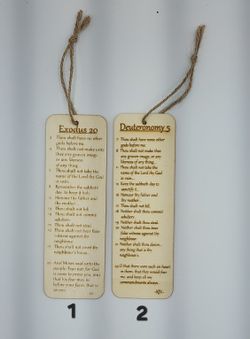 Exodus 20
Thou shalt have no other
gods before me.
Thou shalt not make unto
thee any graven image,
or any likeness
of any thing.
Thou shalt not take the
name of the Lord thy God
in vain.
Remember the sabbath
day, to keep it holy.
Honour thy father and
thy mother.
Thou shalt not kill.
Thou shalt not commit
adultery.
Thou shalt not steal.
Thou shalt not bear false
witness against thy
neighbour.
Thou shalt not covet thy
neighbour's house.
And Moses said unto the
people, Fear not: for God
is come to prove you, and
that his fear may be
before your faces, that ye
sin not.
1
Deuteronomy 5
Thou shalt have none other
gods before me.
Thou shalt not make thee
any graven image, or any
likeness of any thing.
Thou shalt not take the
name of the Lord thy God
in vain.
Keep the sabbath day to
sanctify it.
Honour thy father and
thy mother.
Thou shalt not kill.
Neither shalt thou commit
adultery.
Neither shalt thou steal.
Neither shalt thou bear
false witness against thy
neighbour.
Neither shalt thou desire
any thing that is thy
neighbour's.
O that there were such an heart
in them, that they would fear
me, and keep all my
commandments always
2